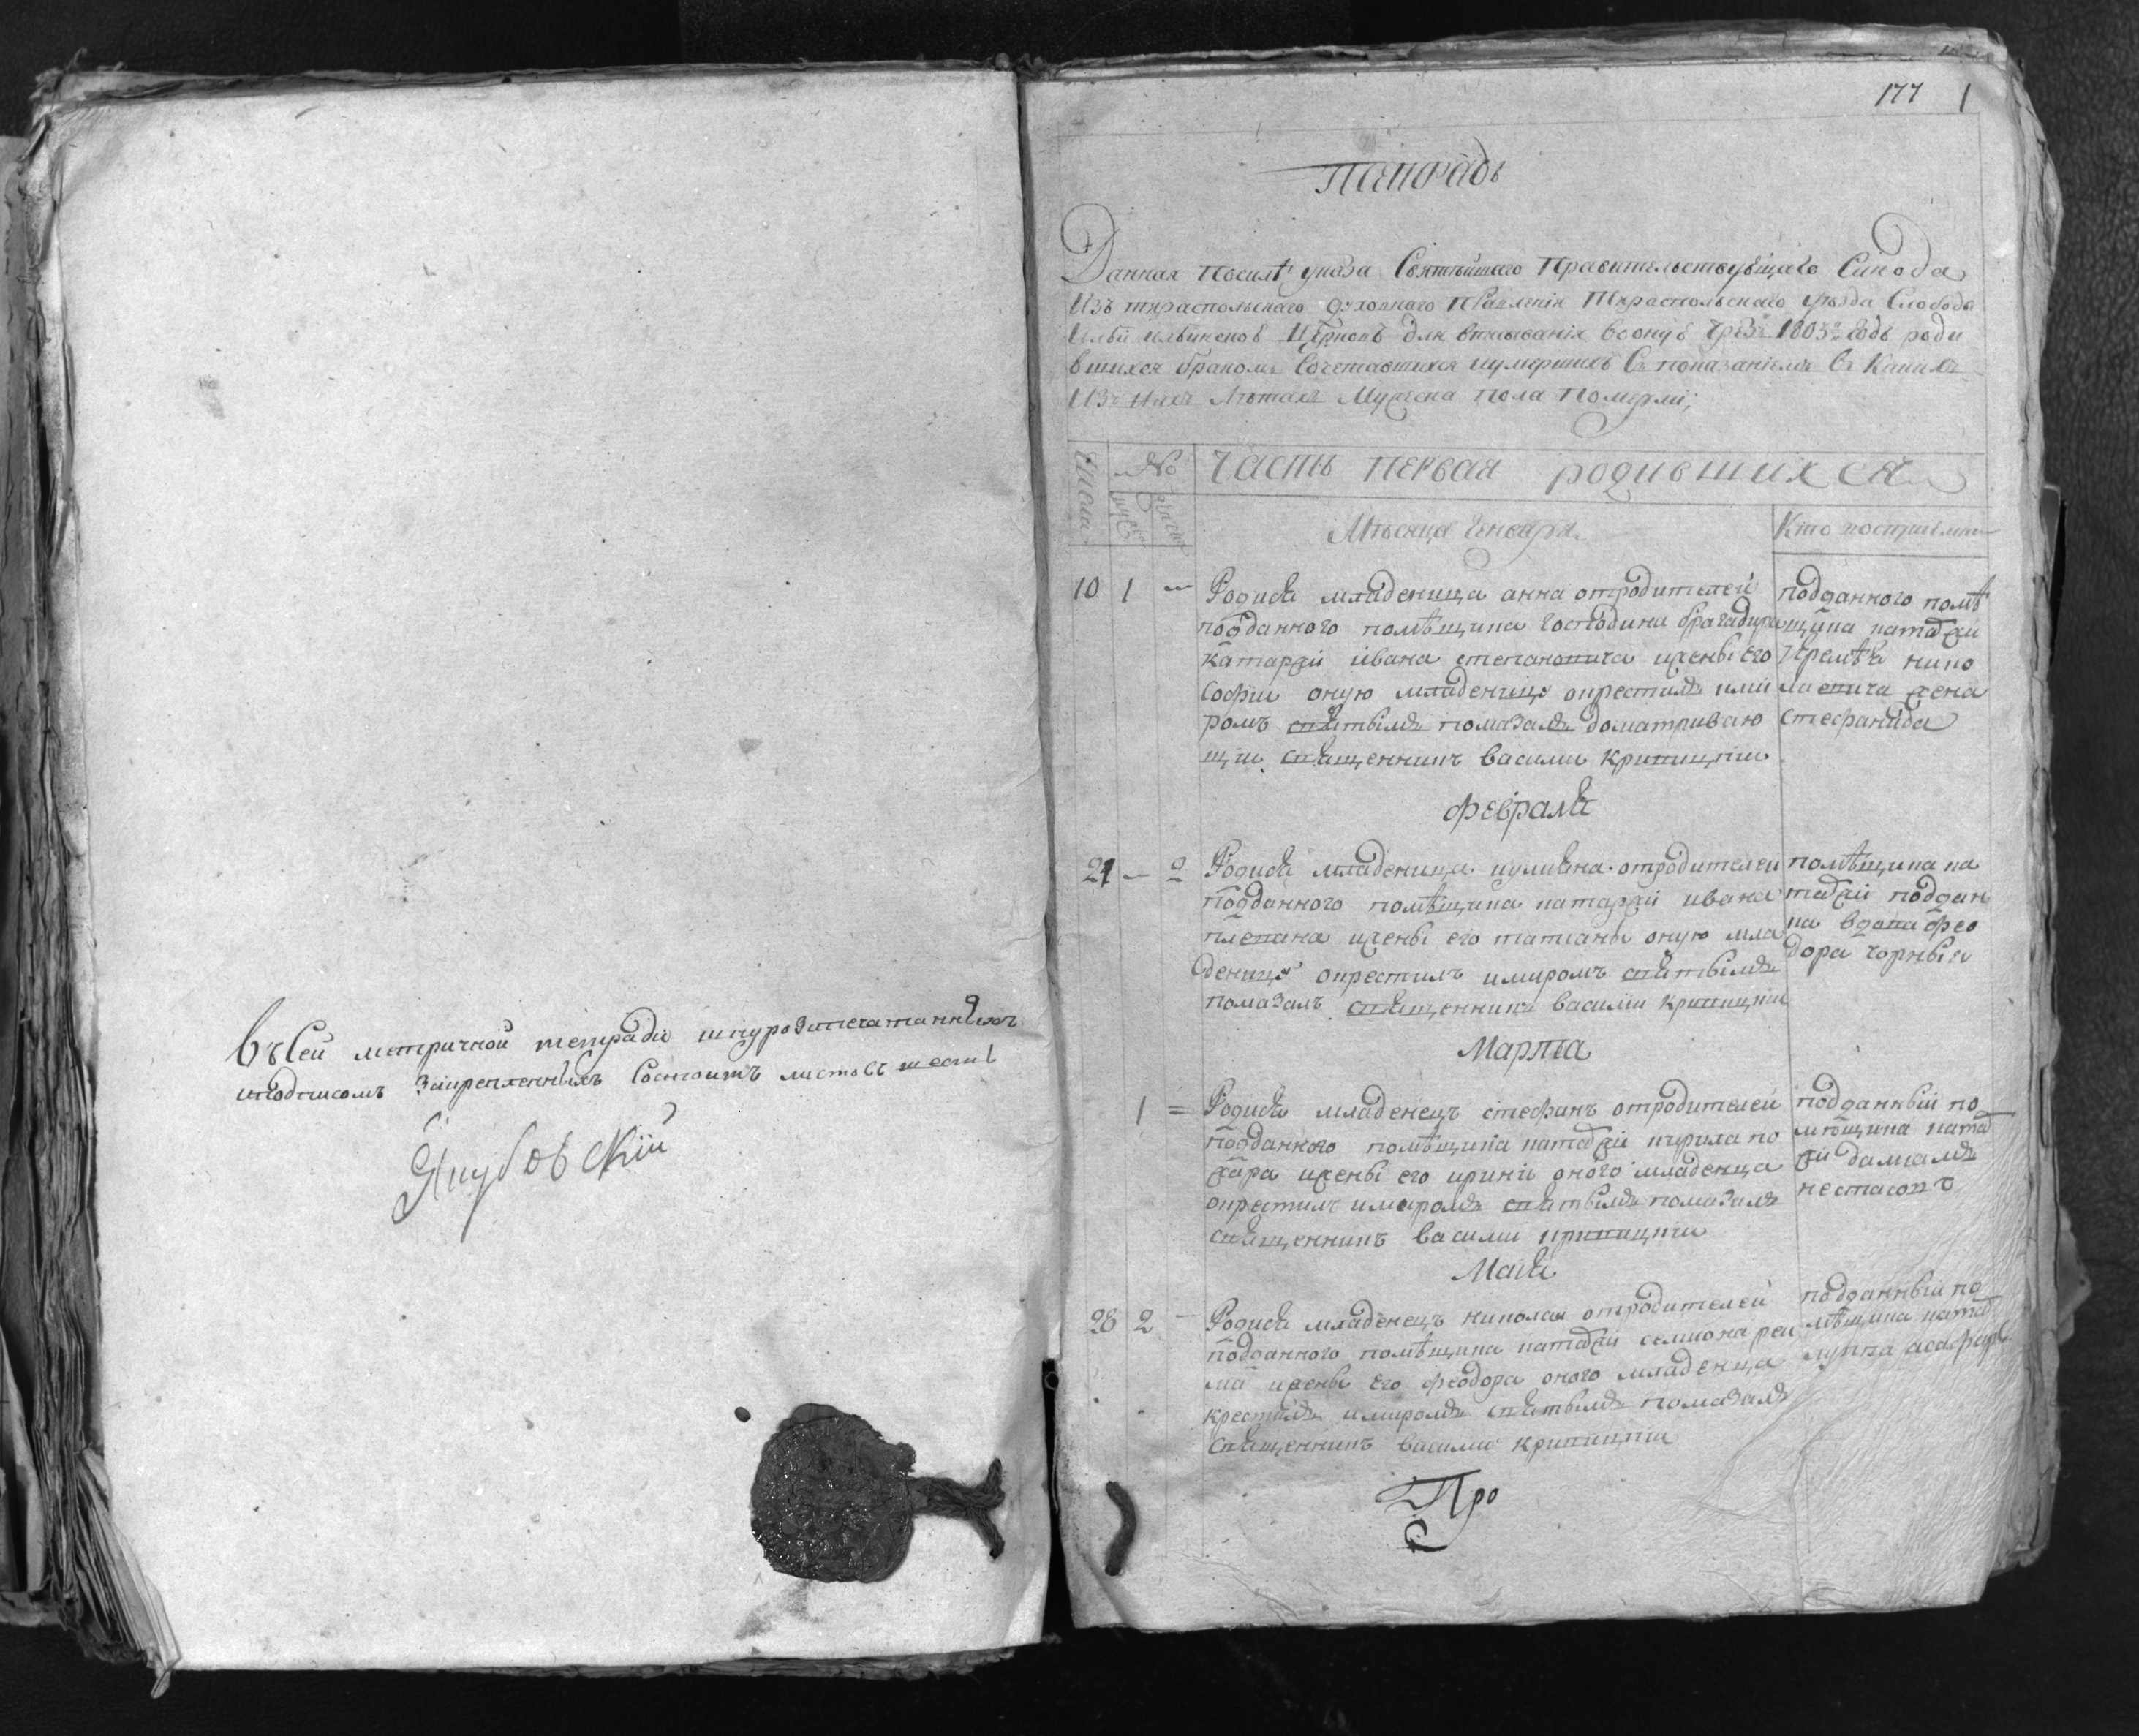 Въ сей метричной тетради шнурозапечатанныхъ
и подписомъ закрепленныхъ состоитъ листовъ шесть
Якубовскій
177 1
Тетрадь
Данная посилѣ указа Святѣйшаго Правительствующаго Синода
Изъ тираспольскаго духовнаго правленія Тираспольскаго уѣзда Слободы
церковъ для вписыванія во оную чрезъ 1803й годъ роди
вшихся бракомъ Сочетавшихся иумершихъ Съ показаніемъ Въ какихъ
Изъ нихъ лѣтахъ Мужеска пола померли;
Число № часть первая родившихся
Мѣсяца Генваря Кто воспріемни
10 1 — Родися младеница анна отродителей
подданного помѣщика господина брагадира
катаржи ивана степановича ижены его
Софии оную младеницу окрестилъ ими
ромъ святымъ помазалъ досматриваю
щии священникъ василии кривицкии
подданного помѣ
щика катаржи
нико
лаевича жена
стефанида
февраля
21 — 2 Родися младеница иулияна отродителеи
подданного помѣщика катаржи ивана
плевана ижены его татианы оную мла
деницу окрестилъ имиромъ святымъ
помазалъ священникъ василии кривицкии
помѣщика ка
таржи поддан
на вдова фео
дора чорныя
Марта
1 = Родися младенецъ стефанъ отродителеи
подданного помѣщика катаржи кирила по
жара ижены его ирини оного младенца
окрестилъ имиромъ святымъ помазалъ
священникъ василии кривицкии
подданный по
мѣщика катар
жи дамиамъ
нестасовъ
Маия
28 2 — Родися младенецъ николаи отродителеи
подданного помѣщика катаржи семиона
ижены его феодора оного младенца
крестилъ имиромъ святымъ помазалъ
Священникъ василии кривицкии
подданный по
мѣщика катар
Про